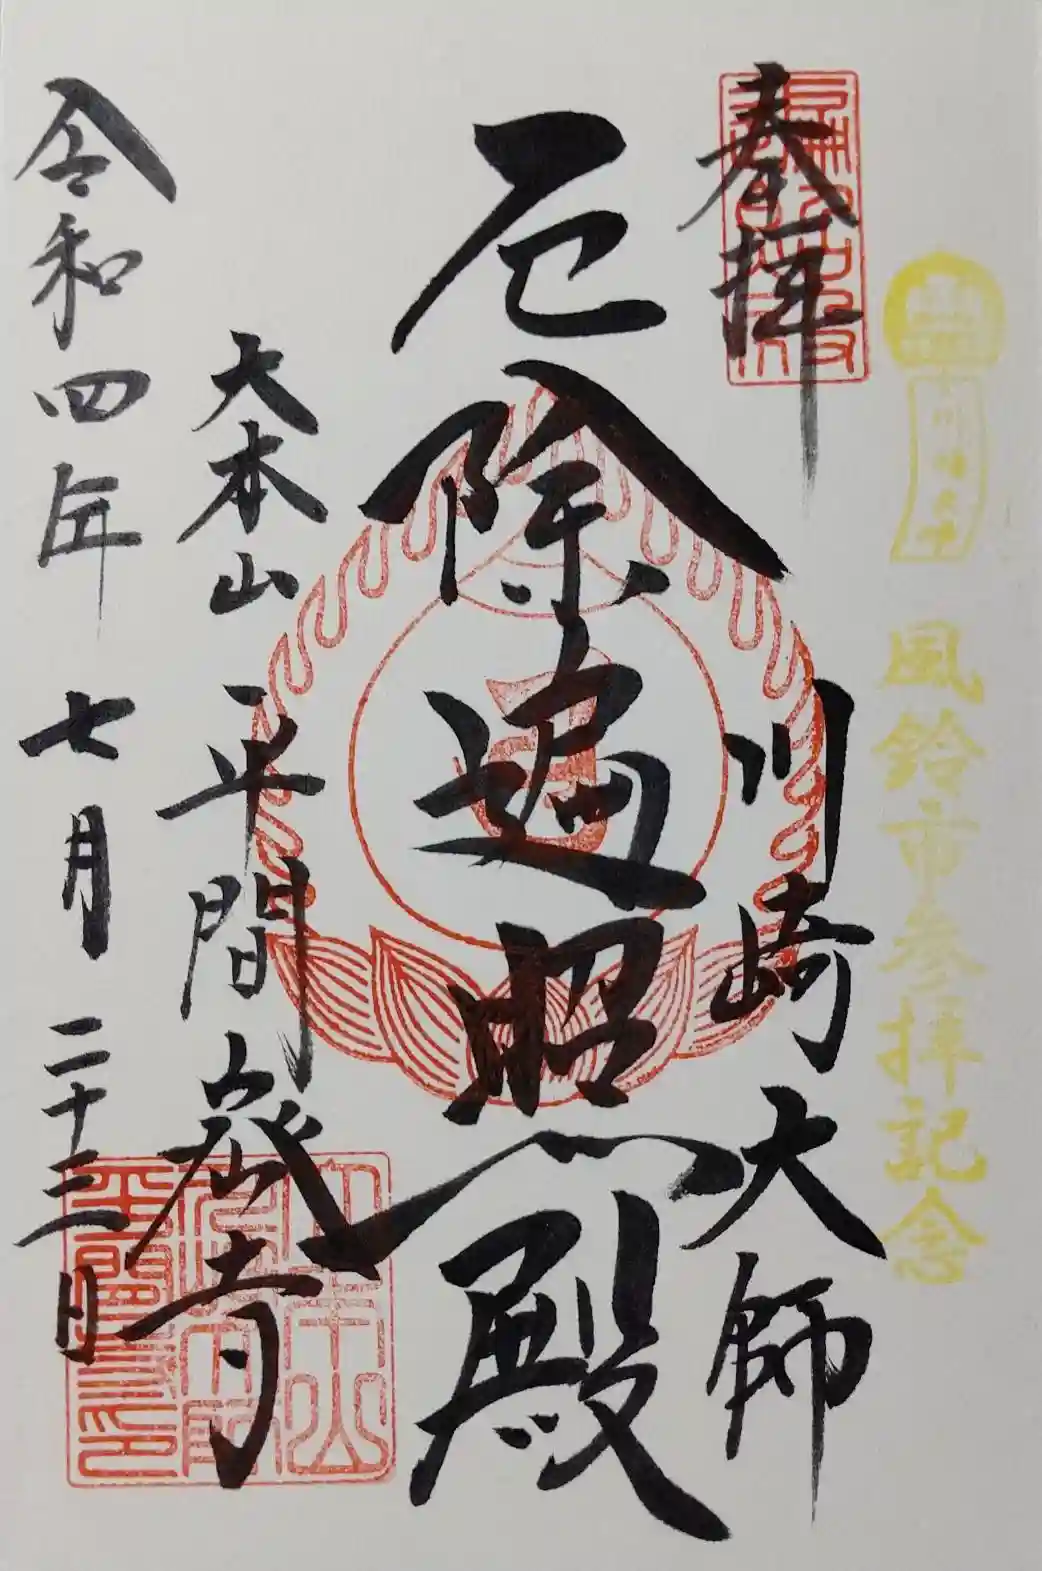 風鈴市参拝記念
奉拝
川崎大師
厄除遍照殿
大本山 平間寺
令和四年 七月 二十三日